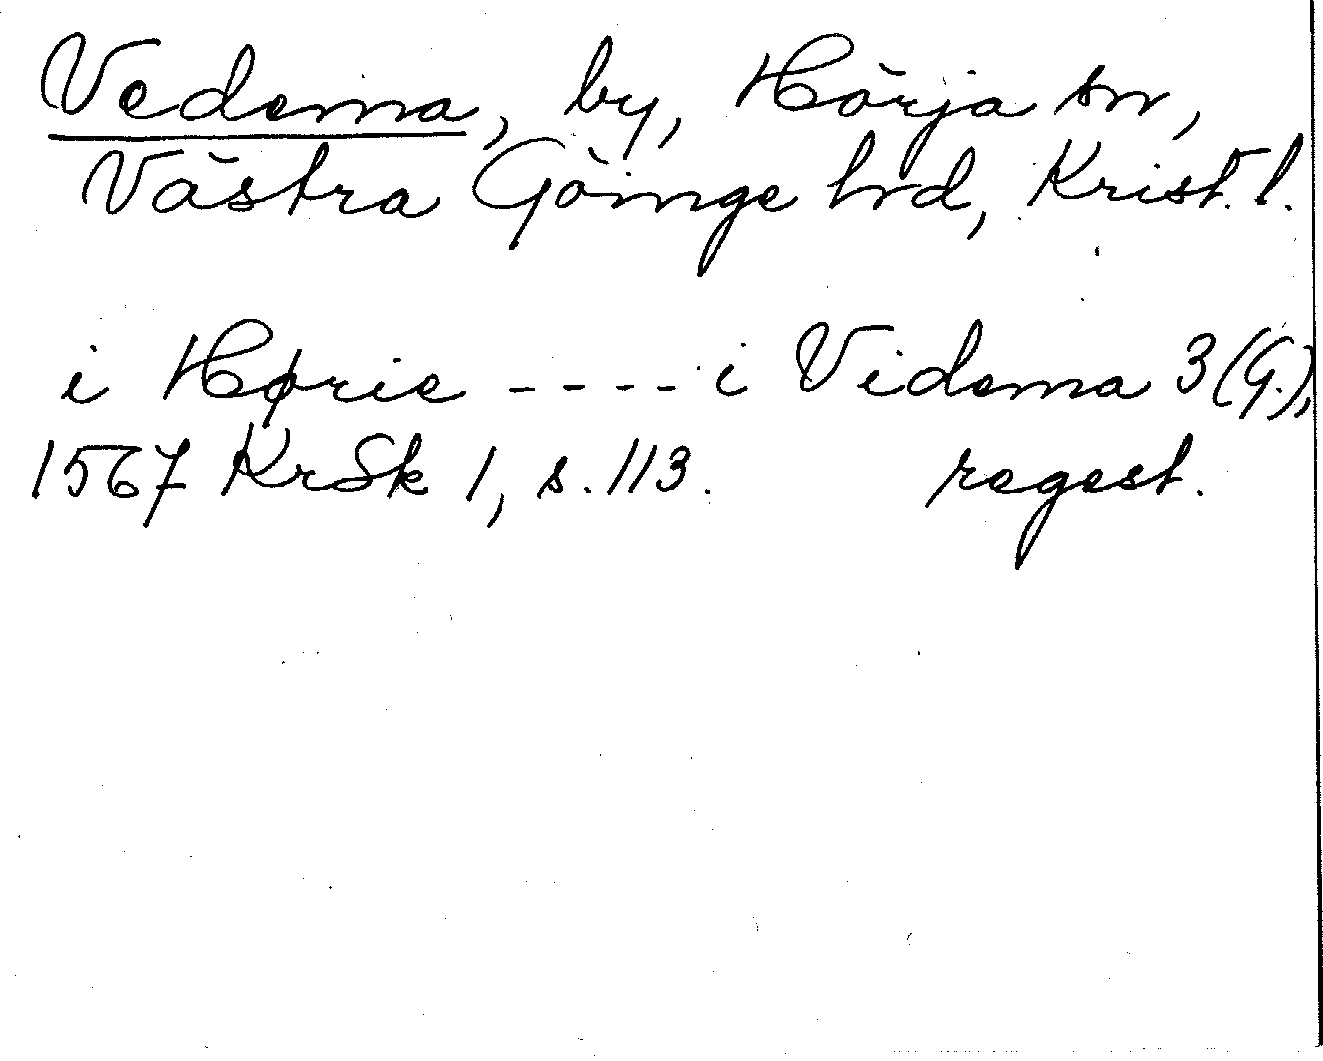 Vedema, by, Hörja sn,
Västra Göinge hrd, Krist. l.
i Hørie ---- i Videma 3 (G.),
1567 KrSk 1, s. 113. regest.